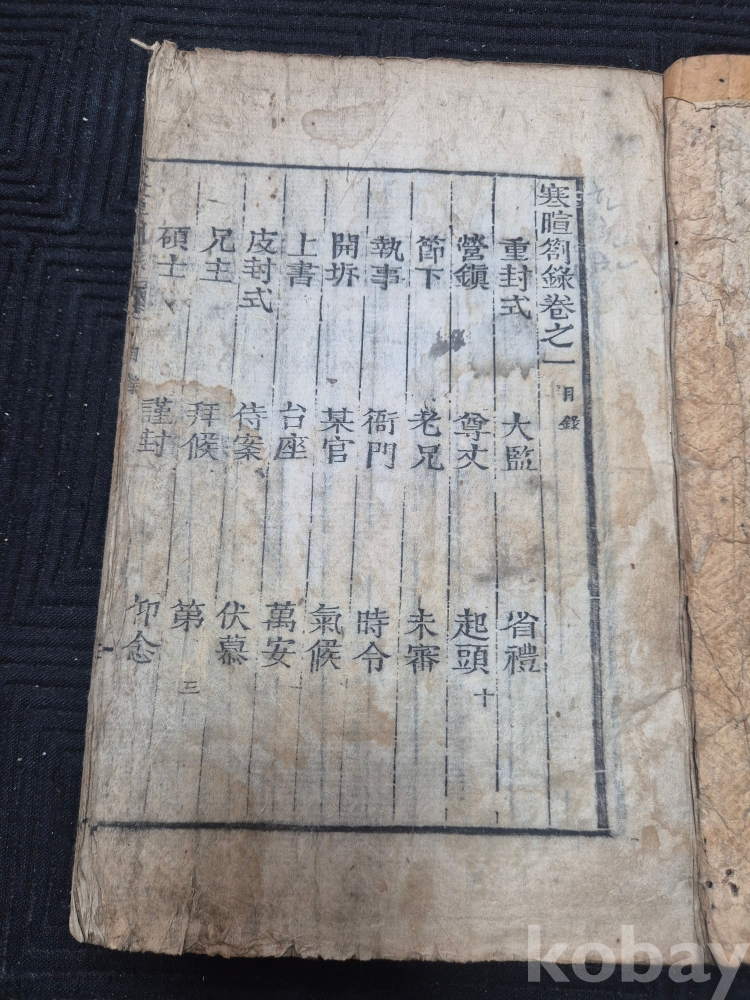 寒暄劄錄卷之一 目錄
重封式 大監 省禮
營鎭 尊丈 起頭 十
節下 老兄 未審
執事 衙門 時令
開坼 某官 氣候
上書 台座 萬安
皮封式 侍案 伏慕
兄主 拜候 第 三
碩士 謹封 仰念
kobay